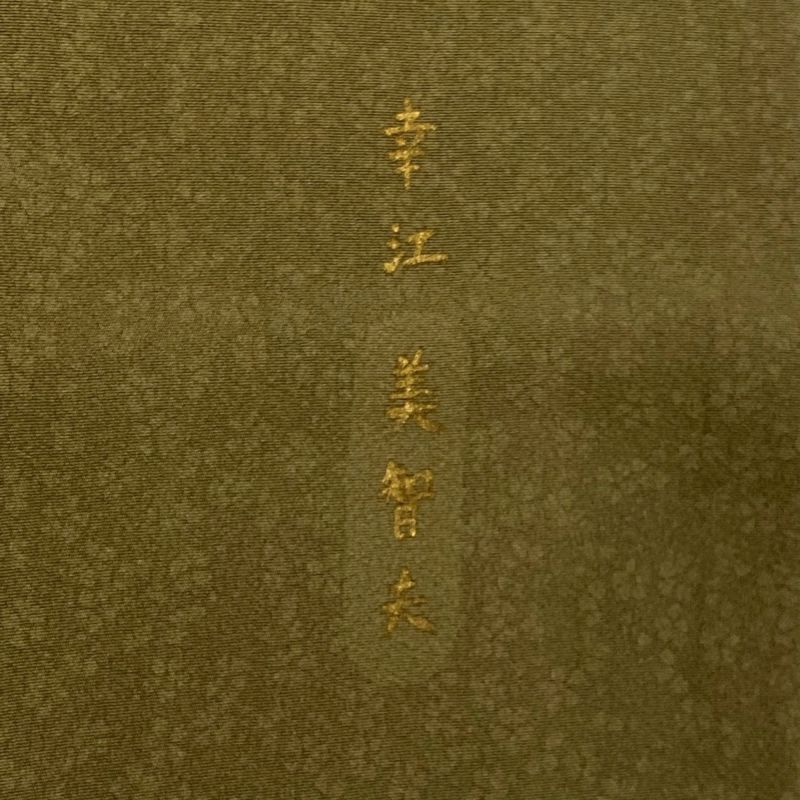 幸江 美智夫